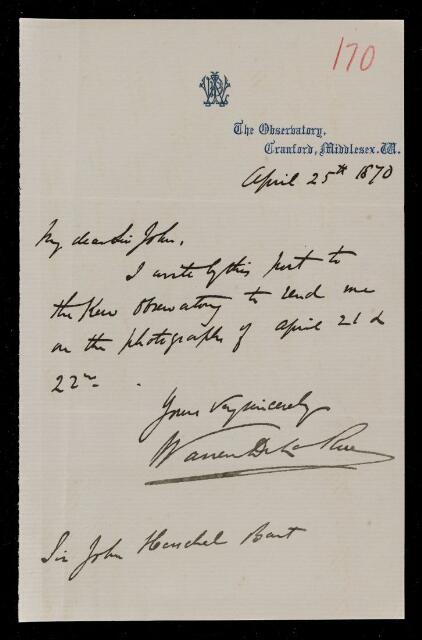 170
The Observatory,
Cranford, Middlesex. W.
April 25th 1870
My dear Sir John,
I write by this post to
the Kew Observatory to send me
on the photographs of April 21 &
22nd.
Yours very sincerely
Warren De La Rue
Sir John Herschel Bart